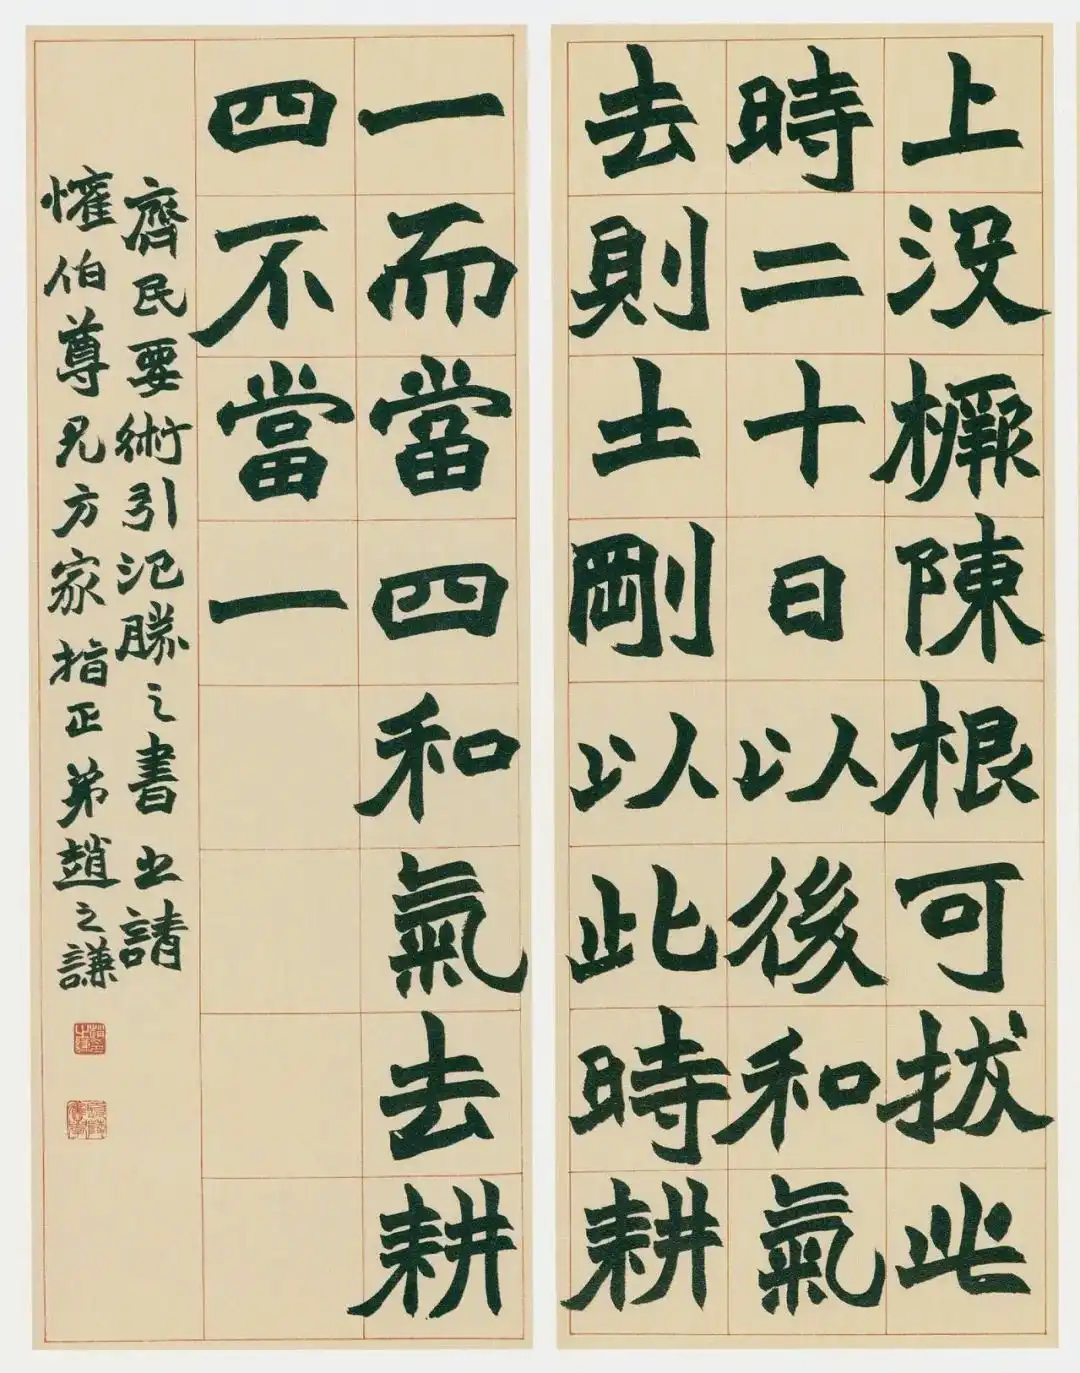 上没橛陳根可拔此
時二十日以後和氣
去則土剛以此時耕
一而當四和氣去耕
四不當一
齊民要術引氾勝之書請
懽伯尊兄方家指正弟趙之謙